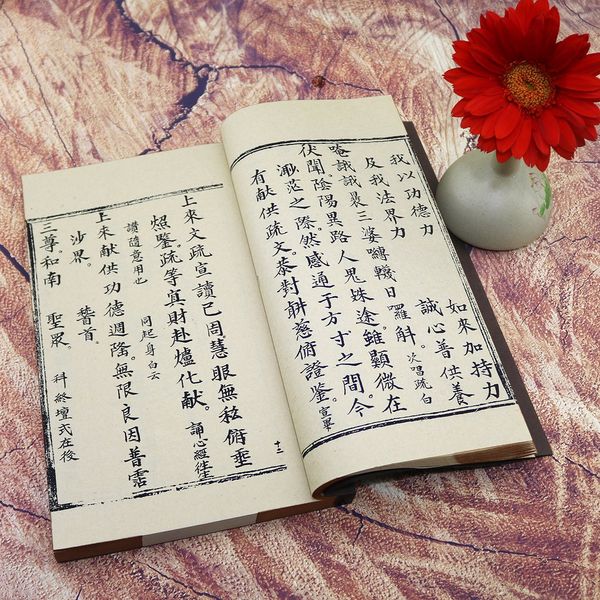 我以功德力
如來加持力
及我法界力
誠心普供養
唵誐誐曩三婆囀韈日囉斛。次唱疏白
伏聞。陰陽異路人鬼蛛途。雖顯微在
溮茫之際。然感通于方寸之間。今
有獻供疏文。恭對聖慈俯證鑒。宣畢
上來文疏宣讀已周慧眼無私俯垂
照鑒。疏等真財赴爐化獻。誦心經往生
讚隨意用也
同起身白云
上來献供功德週隆。無限良因普霑
沙界。
稽首。
三尊和南
聖眾
科終壇式在後
十二